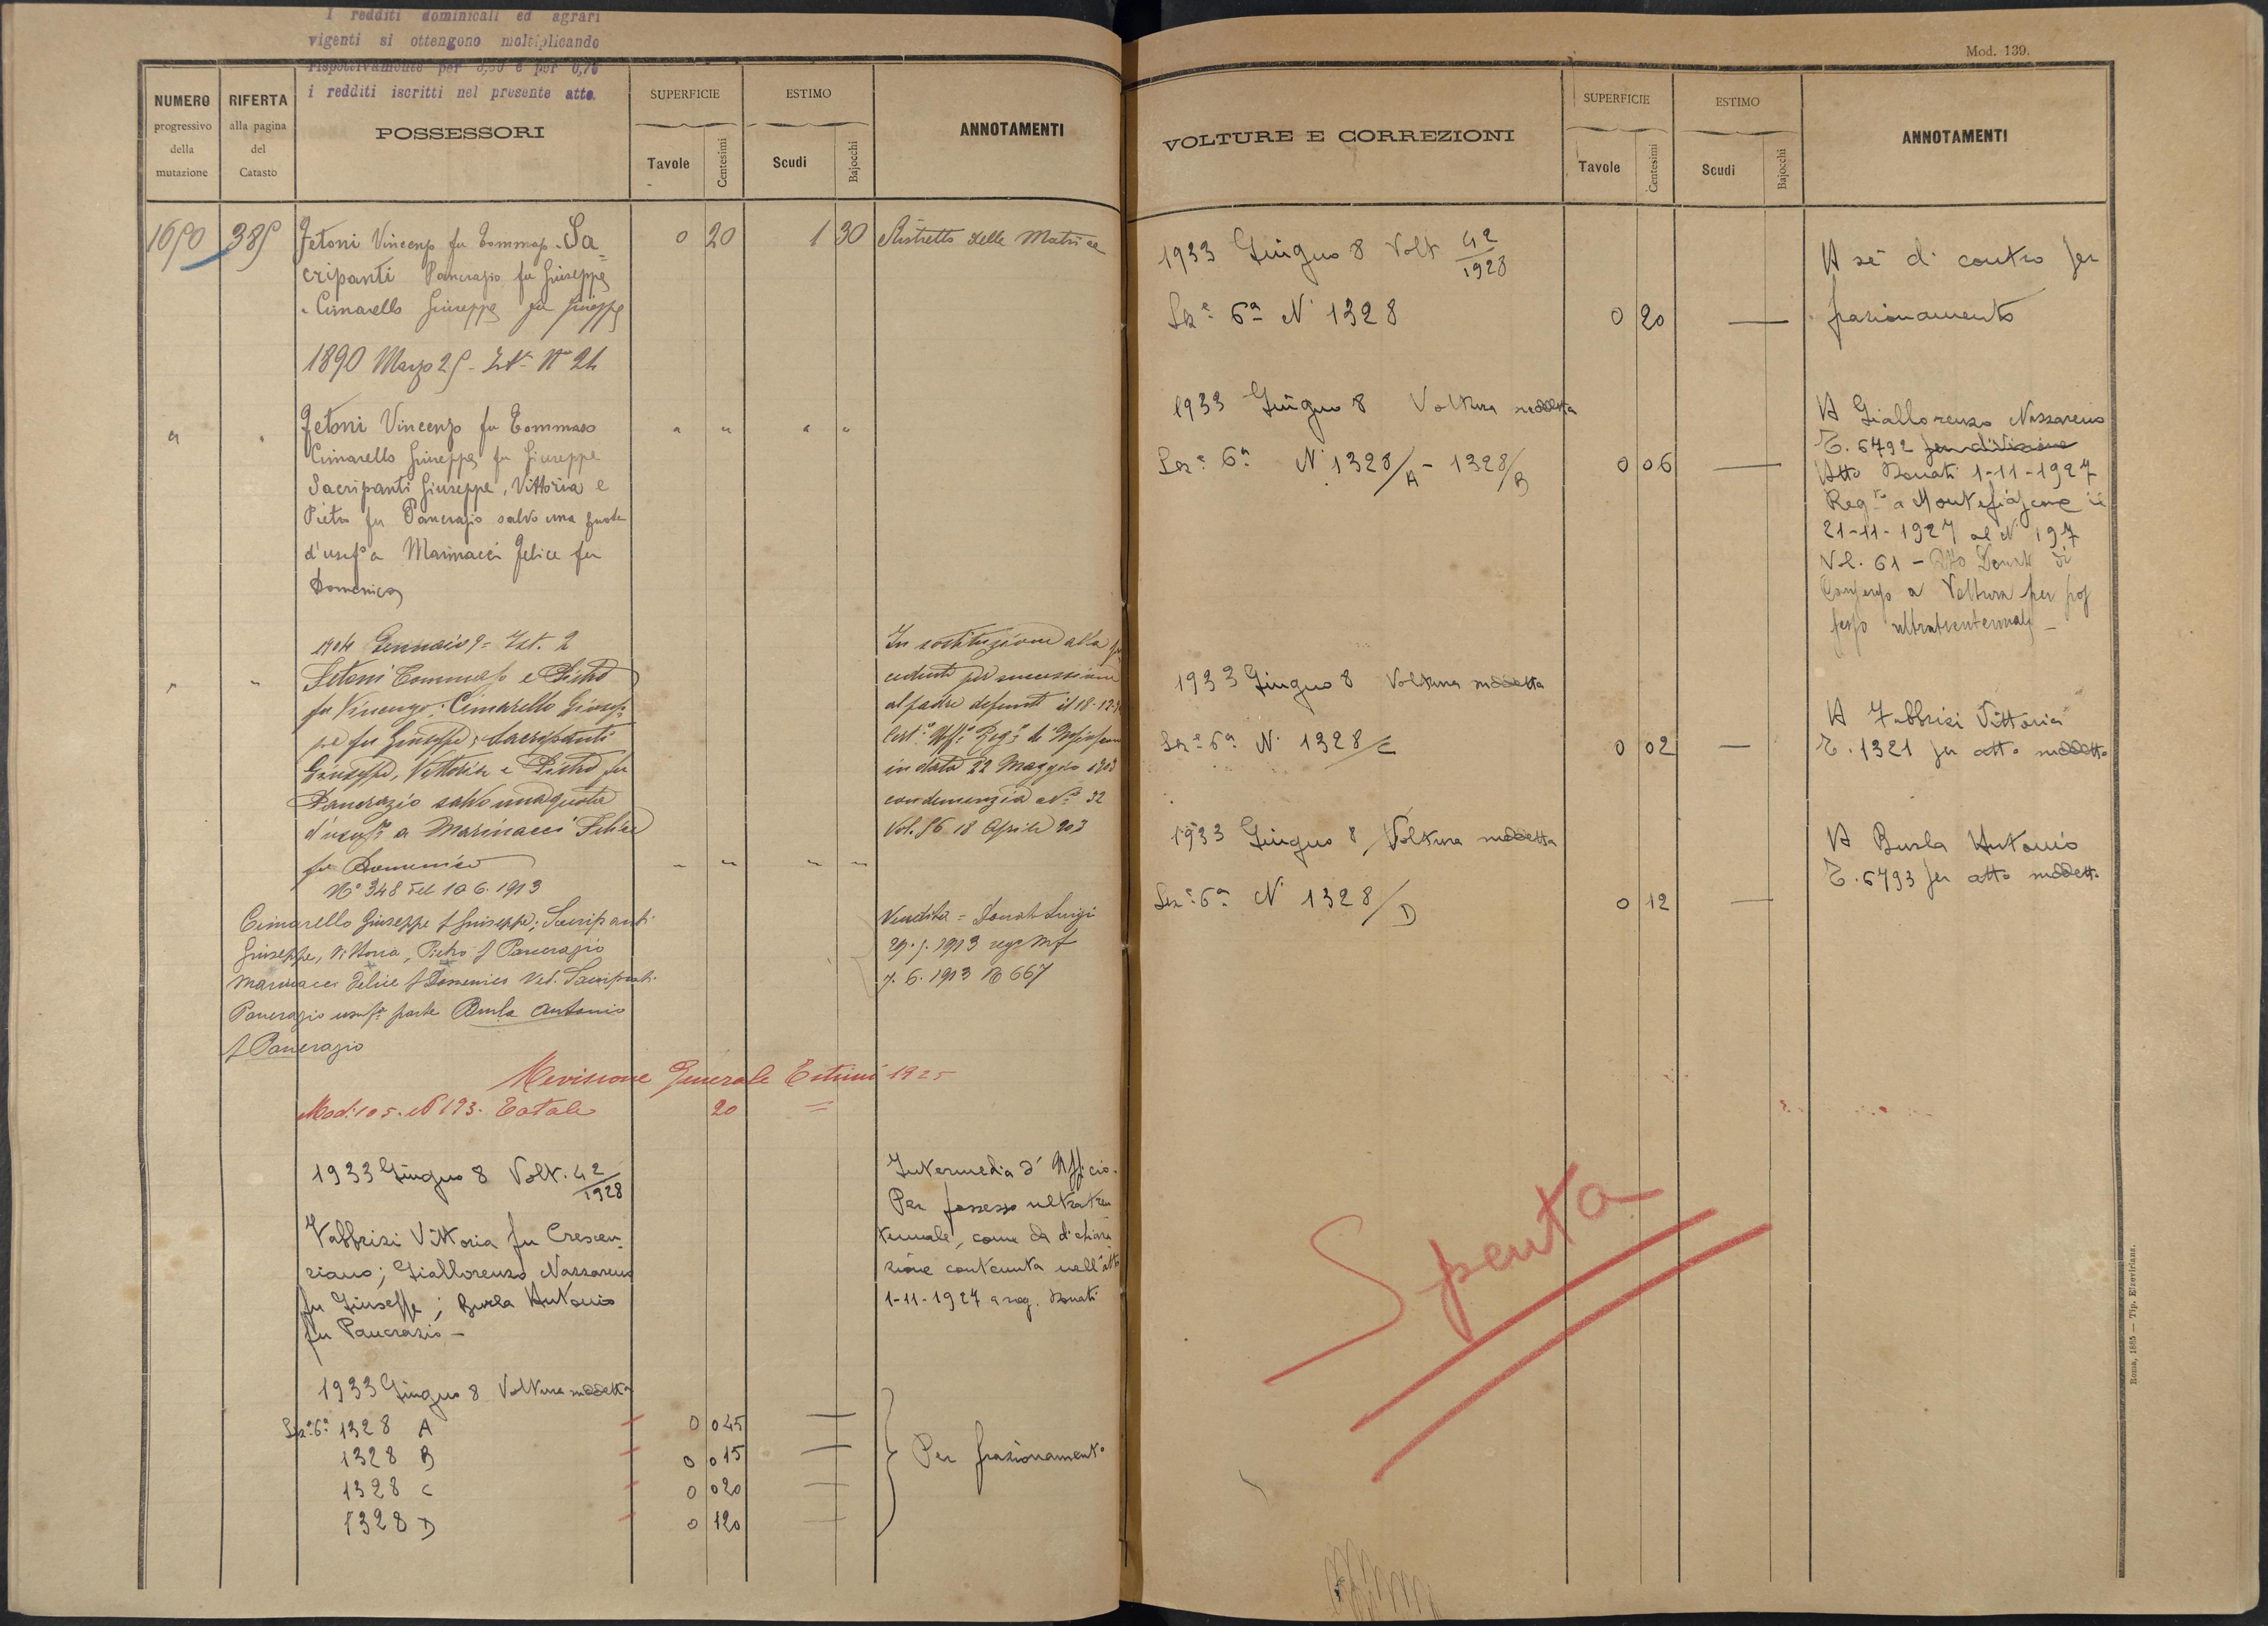 I redditi dominicali ed agrari
vigenti si ottengono moltiplicando
rispettivamente per
i redditi iscritti nel presente atto.
NUMERO
progressivo
della
mutazione
RIFERTA
alla pagina
del
Catasto
POSSESSORI
SUPERFICIE
Tavole
Centesimi
ESTIMO
Scudi
Bajocchi
ANNOTAMENTI
1650 385 Fetoni Vincenzo fu Tommaso - Sa= 0 20 1 30 Ristretto delle Matrice
cripanti Pancrazio fu Giuseppe
- Cimarello Giuseppe fu Giuseppe
1890 Marzo 25 - N° 24
" " Fetoni Vincenzo fu Tommaso " " " "
Cimarello Giuseppe fu Giuseppe
Sacripanti Giuseppe, Vittoria e
Pietro fu Pancrazio salvo una quota
d'usuf° a Marinacci Felice fu
Domenico
1904 Gennaio 9 = Ist. 2
" " Fetoni Tommaso e Pietro
fu Vincenzo; Cimarello Giusep=
pe fu Giuseppe; Sacripanti
Giuseppe, Vittoria e Pietro fu
Pancrazio salvo una quota
d'usuf° a Marinacci Felice
fu Domenico " " " "
In sostituzione alla
per successione
al padre defunto il 18-12
in data 22 Maggio 1903
N° 32
Vol. 56 18 Aprile 903
N° 348 del 10 6. 1913
Cimarello Giuseppe f Giuseppe; Sacripanti
Giuseppe, Vittoria, Pietro f Pancrazio
Marinacci Felice f Domenico Ved. Sacripanti
Pancrazio usuf° parte Burla Antonio
f Pancrazio
Vendita = Donati Luigi
29. 5. 1913 reg° Mf
7. 6. 1913 N 667
Revisione Generale Estimi 1925
Mod. 105. N 193. Totale 20 =
1933 Giugno 8 Volt. 42/1928
Fabbrizi Vittoria fu Crescen=
ziano; Giallorenzo Nazzareno
fu Giuseppe; Burla Antonio
fu Pancrazio -
Intermedia d'Ufficio.
Per possesso ultratren
tennale, come da dichiara
zione contenuta nell'atto
1-11-1927 a rog. Donati
1933 Giugno 8 Voltura suddetta
Sez.e 6a 1328 A 0 045 —
1328 B 0 015 —
1328 C 0 020 —
1328 D 0 120 —
Per frazionamento
Mod. 139.
VOLTURE E CORREZIONI
SUPERFICIE
Tavole
Centesimi
ESTIMO
Scudi
Bajocchi
ANNOTAMENTI
1933 Giugno 8 Volt 42/1928
Sez.e 6a N. 1328 0 20 —
A sé di contro per
frazionamento
1933 Giugno 8 Voltura suddetta
Sez.e 6a N. 1328/A - 1328/B 0 06 —
A Giallorenzo Nazzareno
T. 6792 per divisione
Atto Donati 1-11-1927
Reg.to a Montefiascone il
21-11-1927 al N. 197
Vol. 61 - Atto Donati di
Consenso a Voltura per pos
sesso ultratrentennale -
1933 Giugno 8 Voltura suddetta
Sez.e 6a N. 1328/C 0 02 —
A Fabbrizi Vittoria
T. 1321 per atto suddetto
1933 Giugno 8 Voltura suddetta
Sez.e 6a N. 1328/D 0 12 —
A Burla Antonio
T. 6793 per atto suddetto
Spenta
Roma, 1885 — Tip. Elzeviriana.